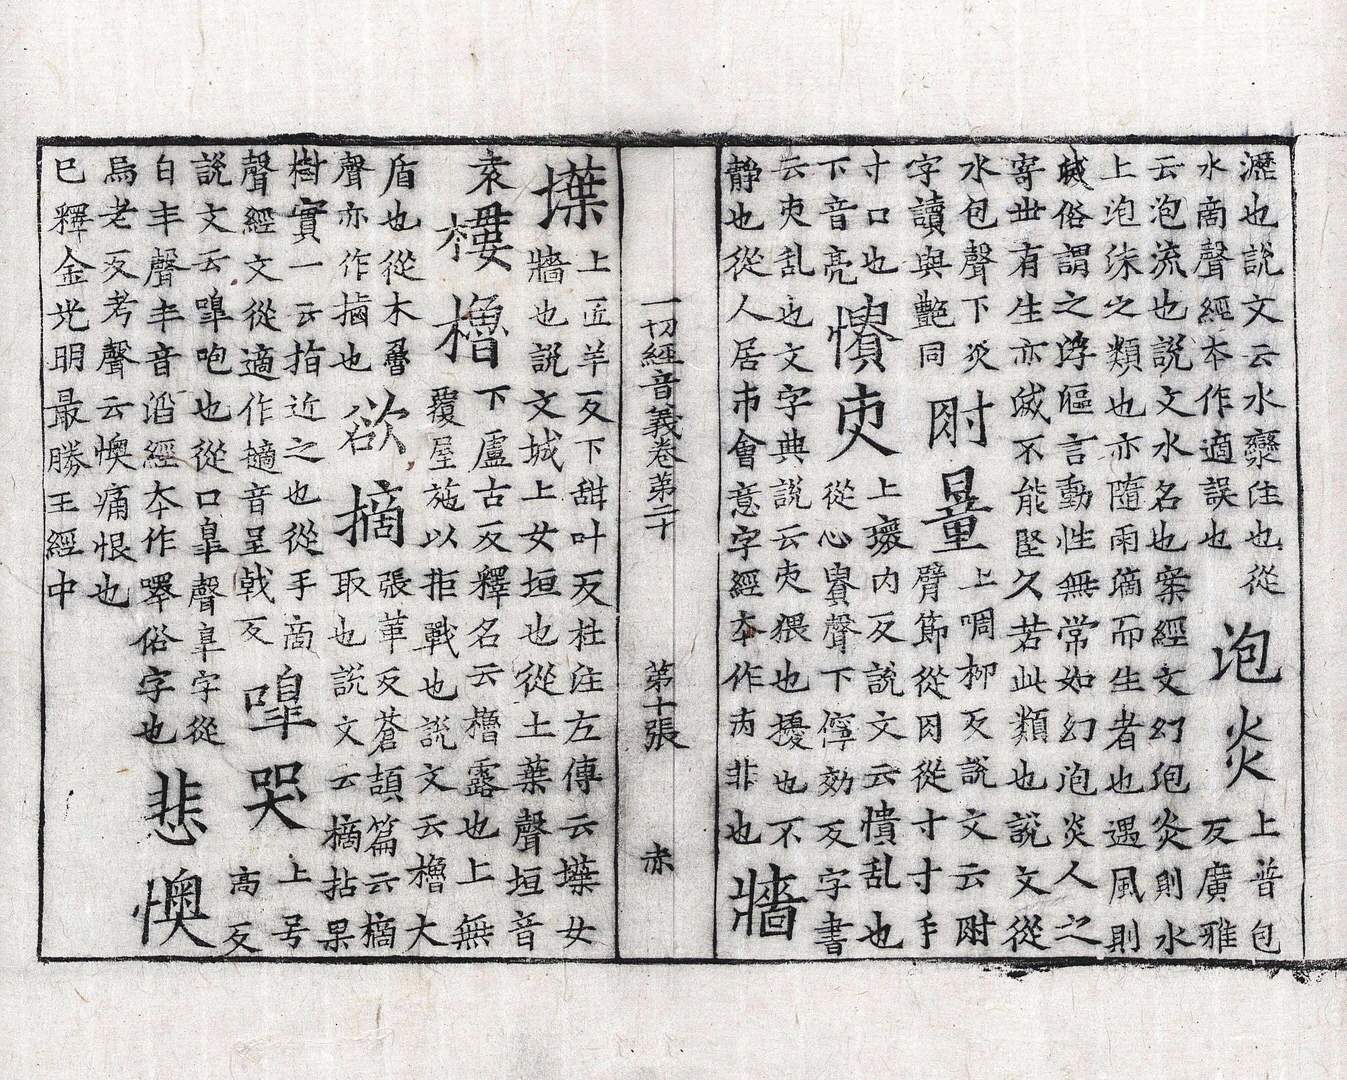 瀝也說文云水欒注也從
水啇聲經本作適誤也
泡炎
上普包
反廣雅
云泡流也說文水名也案經文幻泡炎則水
上泡沫之類也亦隨雨滴而生者也遇風則
滅俗謂之浮漚言動性無常如幻泡炎人之
寄世有生亦滅不能堅久若此類也說文從
水包聲下炎
字讀與艷同
肘量
上啁柳反說文云肘
臂節從肉從寸寸手
寸口也
下音亮
憒㕝
上瓌內反說文云憒乱也
從心貴聲下儜効反字書
云㕝乱也文字典說云㕝猥也擾也不
靜也從人居市會意字經本作丙非也
牆
一切經音義卷第二十 第十張 赤
堞
上匠羊反下甜叶反杜注左傳云堞女
牆也說文城上女垣也從土葉聲垣音
袁
樓櫓
下盧古反釋名云櫓露也上無
覆屋施以拒戰也說文云櫓大
盾也從木魯
聲亦作㯭也
欲摘
張革反蒼頡篇云摘
取也說文云摘拈果
樹實一云指近之也從手啇
聲經文從適作擿音呈戟反
嘷哭
上号
高反
說文云嘷咆也從口皐聲皐字從
白丰聲丰音滔經本作嘷俗字也
悲懊
烏老反考聲云懊痛恨也
已釋金光明最勝王經中